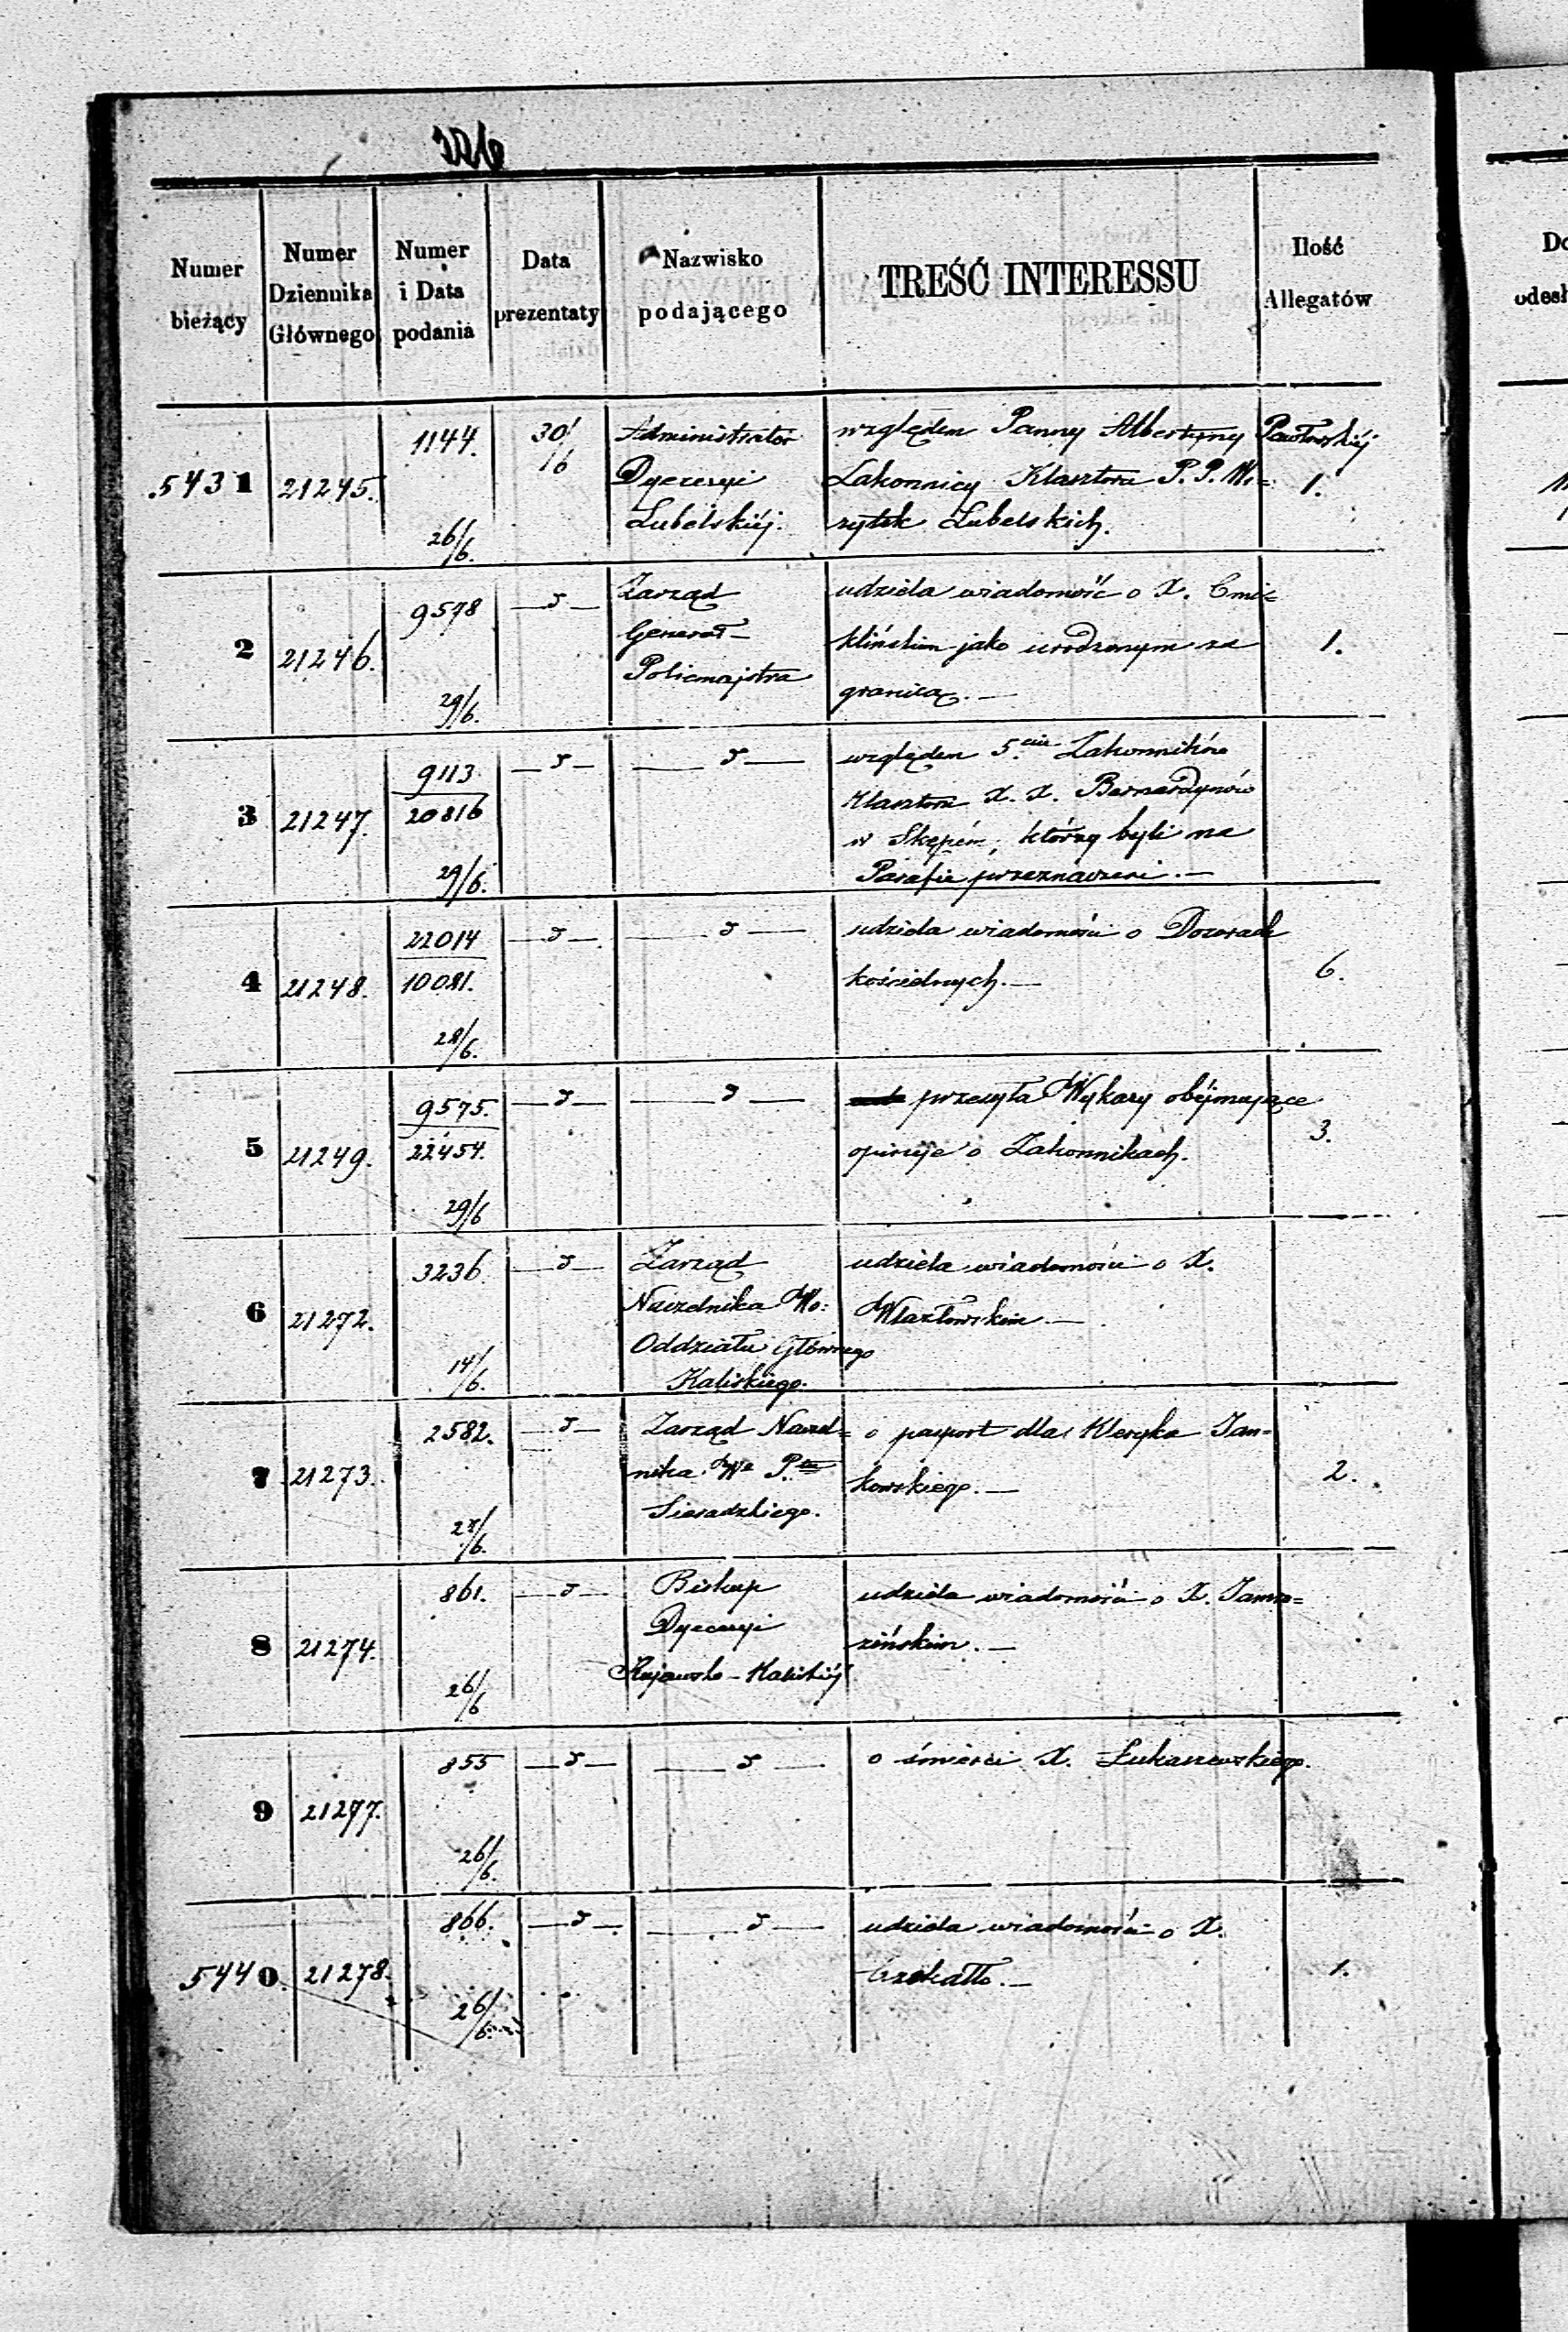 Numer bieżący
Numer Dziennika Głównego
Numer i Data podania
Data prezentaty
Nazwisko podającego
TREŚĆ INTERESSU
Ilość Allegatów
5431 21245. 1144. 26/6. 30/6
Administrator
Dyecezyi
Lubelskiéj.
względem Panny Albertyny Pawłowskiéj
Zakonnicy Klasztoru P. P. Wi=
zytek Lubelskich.
1.
2 21246. 9578 29/6. —d—
Zarząd
Generał-
Policmajstra
udziela wiadomość o X.
jako urodzonym za
granicą.—
1.
3 21247. 9113 20816 29/6. —d— —d—
względem 5.ciu Zakonników
Klasztoru X. X. Bernardynów
w Skępém, którzy byli na
Parafie przeznaczeni.—
4 21248. 22014 10081. 28/6. —d— —d—
udziela wiadomości o Dozorach
kościelnych.—
6.
5 21249. 9575. 22454. 29/6 —d— —d—
przesyła Wykazy obejmujące
opinije o Zakonnikach.
3.
6 21272. 3236 14/6. —d—
Zarząd
Naczelnika Wo:
Oddziału Głównego
Kaliskiego.
udziela wiadomości o X.
Wlazłowskim.—
7 21273. 2582. 27/6. —d—
Zarząd Naczel=
nika We P.tu
Sieradzkiego.
o paszport dla Kleryka Jan=
kowskiego.—
2.
8 21274. 861. 26/6 —d—
Biskup
Dyecezyi
Kujawsko-Kaliskiéj
udziela wiadomości o X.
zińskim.—
9 21277. 855 26/6. —d— —d—
o śmierci X. Łukaszewskiego.
5440 21278. 866. 26/6. —d— —d—
udziela wiadomości o X.
1.